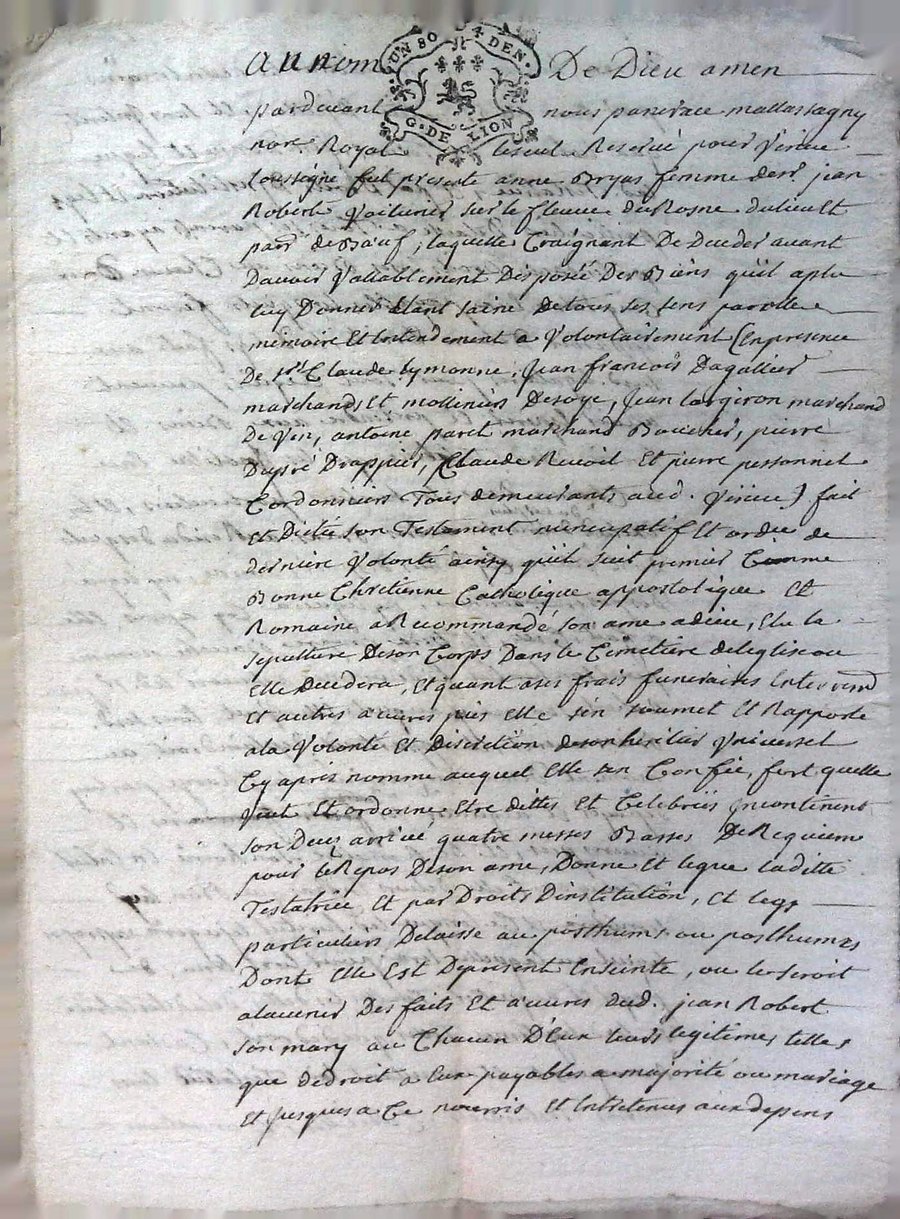 UN SO 4 DEN.
G. DE LION
au nom De Dieu amen
pardevant nous pancrace mallassagny
nore. Royal le seul Reservé pour Virieu
soussigné fut presente anne Bryas femme de sr. jean
Robert Voiturier sur le fleuve du Rosne du lieu et
parr. de Bœuf, laquelle Craignant De Deceder avant
Davoir Vallablement Disposée Des Biens qu'il a plu
luy Donner Etant saine de tous ses sens parolle
memoire Et Entendement a Volontairement (En presence
De srs. Claude symonne, Jean françois Dagallier
marchands Et molliniers De soye, Jean largeron marchand
De Vin, antoine paret marchand Boucher, pierre
Dupré Drappier, Claude Revoil Et pierre personnel
Cordonniers Tous demeurants aud. Virieu) fait
Et Dicté son Testament nuncupatif Et ordre de
derniere Volonté ainsy quil suit premier Comme
Bonne Chretienne Catholique appostolique Et
Romaine a Recommandé son ame a dieu, Elu la
sepulture De son Corps Dans le Cimetiere de leglise ou
Elle Decedera, Et quant a ses frais funeraires
Et autres œuvres pies Elle s'en soumet Et Rapporte
a la Volonté Et Discretion de son heritier Vniversel
Cy apres nommé auquel Elle s'en Confie, fort quelle
Veut Et ordonne Etre dittes Et Celebrées jncontinent
son Decez arrivé quatre messes Basses De Requiem
pour le Repos De son ame, Donne Et legue laditte
Testatrice Et par Droits D'institution, Et legs
particuliers Delaisse au posthume ou posthumes
Dont Elle Est De present Enseinte, ou le seroit
a lavenir Des faits Et œuvres dud. jean Robert
son mary au Chacun D'Eux leurs legitimes telles
que de droit a Eux payables a majorité ou mariage
Et jusques a Ce nourris Et Entretenus aux depens